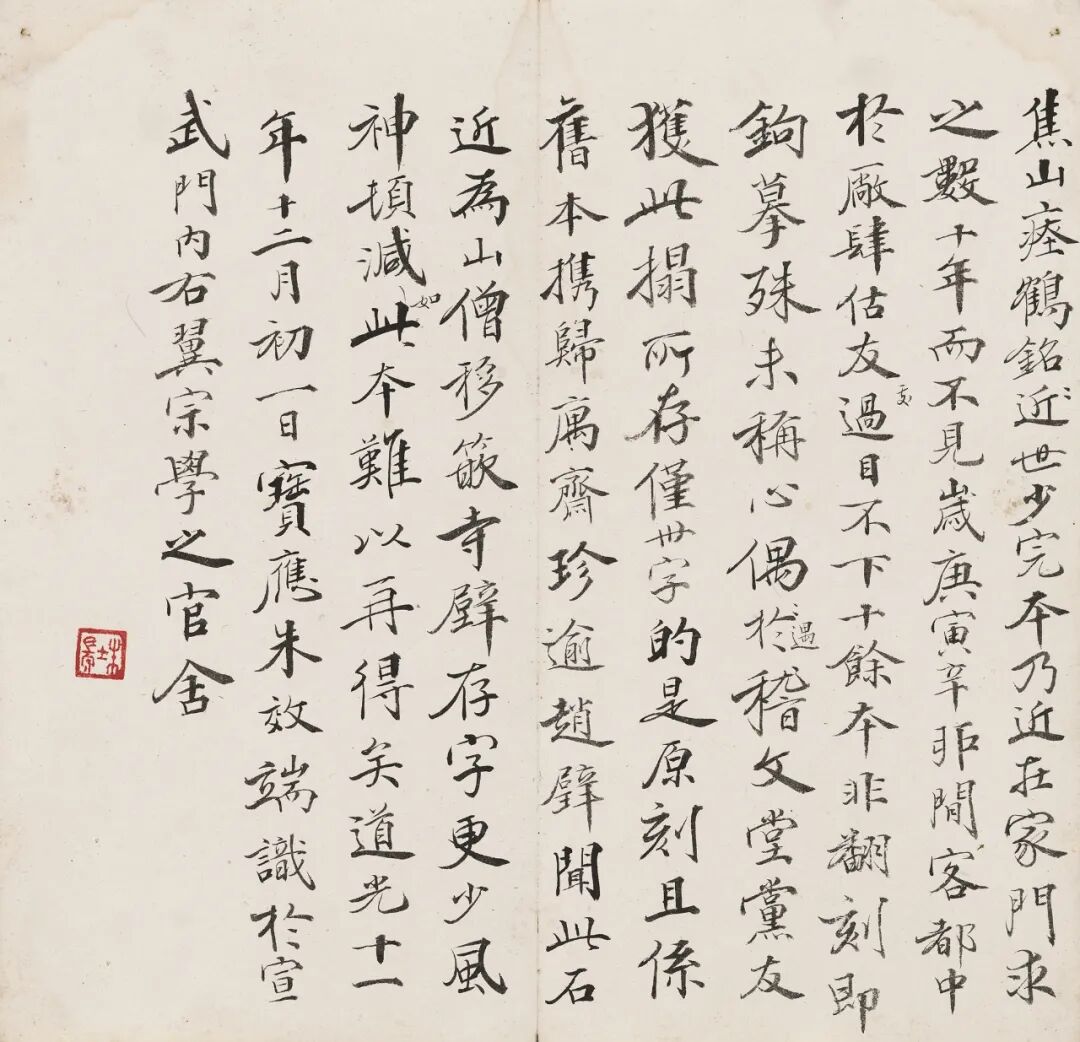 焦山瘞鶴銘近世少完本乃近在家門求
之數十年而不見歲庚寅辛卯間客都中
於厰肆估友處過目不下十餘本非翻刻即
鉤摹殊未稱心偶於遇稽文堂黨友
獲此搨所存僅丗字的是原刻且係
舊本携歸寓齋珍逾趙璧聞此石
近為山僧移嵌寺壁存字更少風
神頓減如此本難以再得矣道光十一
年十二月初一日寶應朱效端識於宣
武門内右翼宗學之官舍